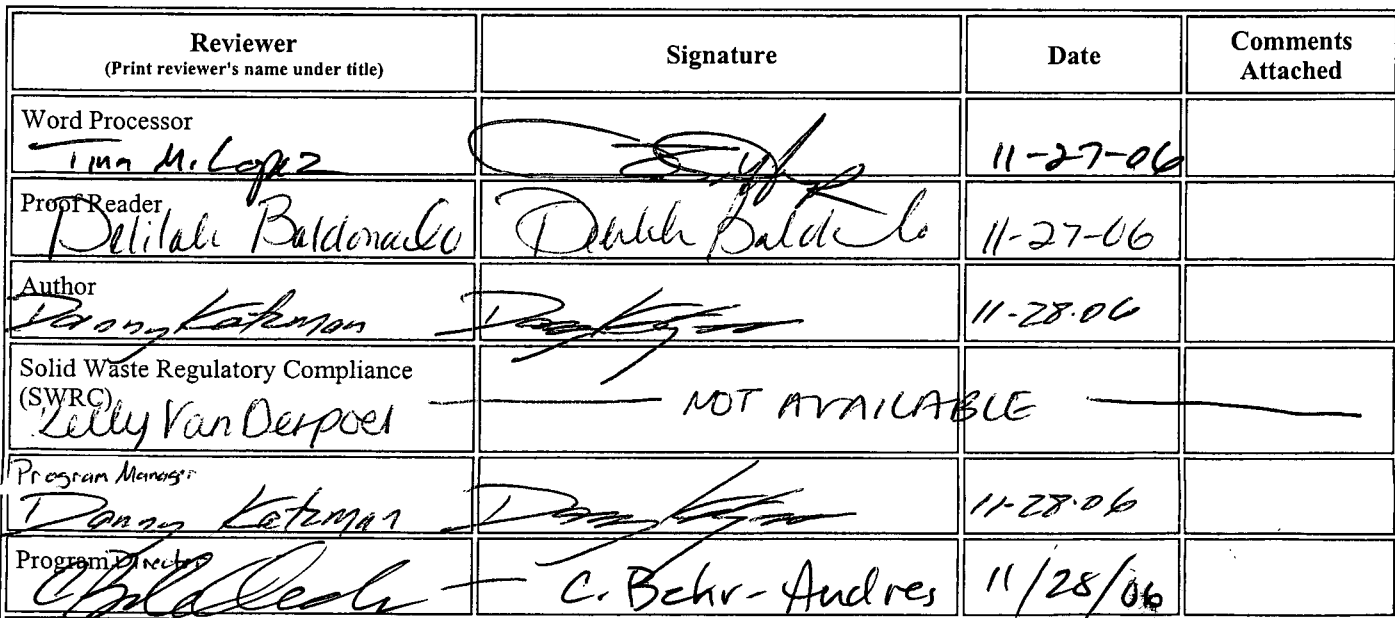 Reviewer
(Print reviewer's name under title)
Signature
Date
Comments
Attached
Word Processor
Tina M. Lopez
11-27-06
Proof Reader
Delilah Baldonado
11-27-06
Author
Danny Katzman
11-28-06
Solid Waste Regulatory Compliance
(SWRC)
Kelly VanDerpoel
NOT AVAILABLE
Program Manager
Danny Katzman
11-28-06
Program Director
C. Behr-Andres
11/28/06